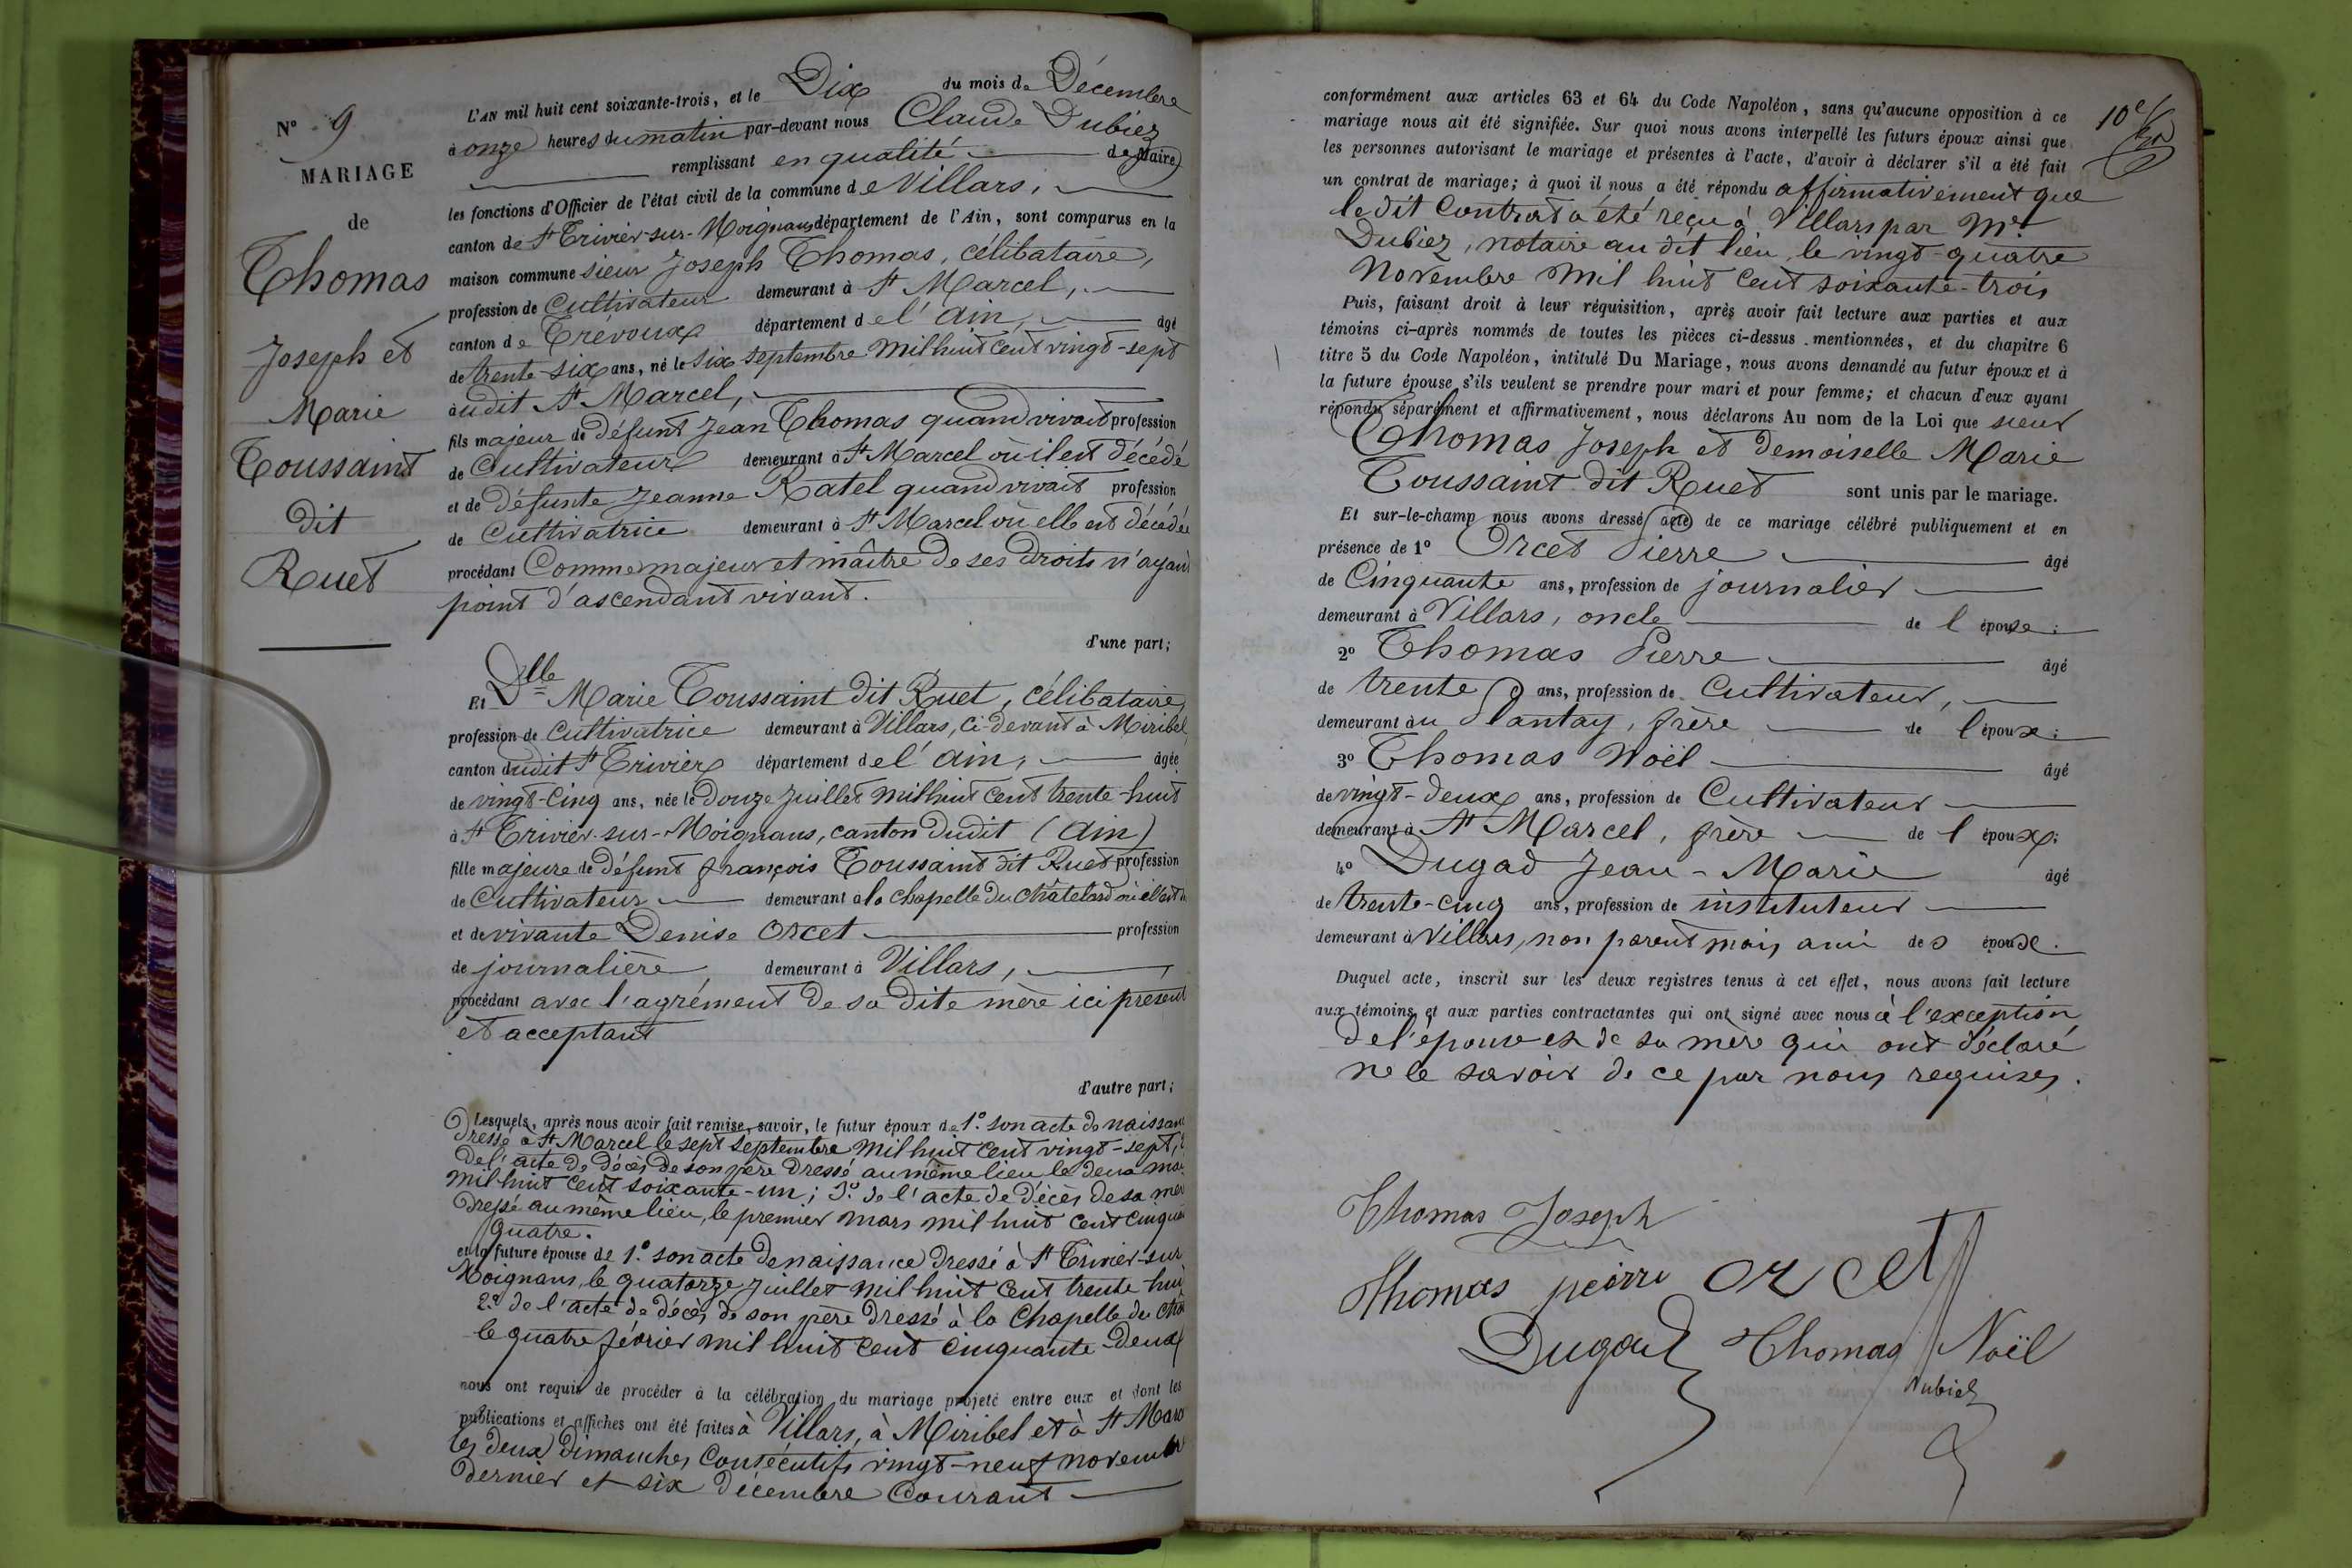 N° 9
MARIAGE
de
Thomas
Joseph et
Marie
Toussaint
dit
Ruet
L'AN mil huit cent soixante-trois, et le Dix du mois de Décembre
à onze heures du matin par-devant nous Claude Dubiez
remplissant en qualité de Maire
les fonctions d'Officier de l'état civil de la commune de Villars,
canton de St Trivier-sur-Moignans département de l'Ain, sont comparus en la
maison commune sieur Joseph Thomas, célibataire,
profession de Cultivateur demeurant à St Marcel,
canton de Trévoux département de l'Ain, âgé
de trente-six ans, né le six septembre mil huit cent vingt-sept
audit St Marcel,
fils majeur de défunt Jean Thomas quand vivait profession
de Cultivateur demeurant à St Marcel où il est décédé
et de défunte Jeanne Ratel quand vivait profession
de Cultivatrice demeurant à St Marcel où elle est décédée
procédant Comme majeur et maître de ses droits n'ayant
point d'ascendant vivant.
d'une part;
Et Dlle Marie Toussaint dit Ruet, célibataire,
profession de Cultivatrice demeurant à Villars, ci-devant à Miribel,
canton dudit St Trivier département de l'Ain, âgée
de vingt-cinq ans, née le Douze Juillet mil huit cent trente-huit
à St Trivier-sur-Moignans, canton dudit (Ain)
fille majeure de défunt françois Toussaint dit Ruet profession
de Cultivateur demeurant à la Chapelle du Châtelard où il est
et de vivante Denise Orcet profession
de journalière demeurant à Villars,
procédant avec l'agrément de sa dite mère ici présent
et acceptant
d'autre part;
Lesquels, après nous avoir fait remise, savoir, le futur époux de 1.° son acte de naissan
dressé à St Marcel le sept septembre mil huit cent vingt-sept,
de l'acte de décès de son père dressé au même lieu le deux ma
mil huit cent soixante-un; 3.° de l'acte de décès de sa mè
dressé au même lieu, le premier mars mil huit cent cinqua
quatre.
et la future épouse de 1.° son acte de naissance dressé à St Trivier-sur
Moignans, le quatorze Juillet mil huit cent trente-hui
2.° de l'acte de décès de son père dressé à la Chapelle du Châ
le quatre février mil huit cent cinquante-deux
nous ont requis de procéder à la célébration du mariage projeté entre eux et dont les
publications et affiches ont été faites à Villars, à Miribel et à St Marc
les deux Dimanches Consécutifs vingt-neuf novembr
dernier et six décembre Courant
10e
conformément aux articles 63 et 64 du Code Napoléon, sans qu'aucune opposition à ce
mariage nous ait été signifiée. Sur quoi nous avons interpellé les futurs époux ainsi que
les personnes autorisant le mariage et présentes à l'acte, d'avoir à déclarer s'il a été fait
un contrat de mariage; à quoi il nous a été répondu affirmativement que
le dit Contrat a été reçu à Villars par Me
Dubiez, notaire au dit lieu, le vingt-quatre
Novembre mil huit cent soixante-trois
Puis, faisant droit à leur réquisition, après avoir fait lecture aux parties et aux
témoins ci-après nommés de toutes les pièces ci-dessus mentionnées, et du chapitre 6
titre 5 du Code Napoléon, intitulé Du Mariage, nous avons demandé au futur époux et à
la future épouse s'ils veulent se prendre pour mari et pour femme; et chacun d'eux ayant
répondu séparément et affirmativement, nous déclarons Au nom de la Loi que sieur
Thomas Joseph et demoiselle Marie
Toussaint dit Ruet sont unis par le mariage.
Et sur-le-champ nous avons dressé acte de ce mariage célébré publiquement et en
présence de 1° Orcet Pierre âgé
de Cinquante ans, profession de journalier
demeurant à Villars, oncle de l épouse;
2° Thomas Pierre âgé
de trente ans, profession de Cultivateur,
demeurant au Plantay, frère de l époux;
3° Thomas Noël âgé
de vingt-deux ans, profession de Cultivateur
demeurant à St Marcel, frère de l époux;
4° Dugad Jean-Marie âgé
de trente-cinq ans, profession de instituteur
demeurant à Villars, non parent mais ami des époux.
Duquel acte, inscrit sur les deux registres tenus à cet effet, nous avons fait lecture
aux témoins et aux parties contractantes qui ont signé avec nous à l'exception
de l'épouse et de sa mère qui ont déclaré
ne le savoir de ce par nous requises.
Thomas Joseph
Thomas peirre orcet
Dugad Thomas Noël
Dubiez